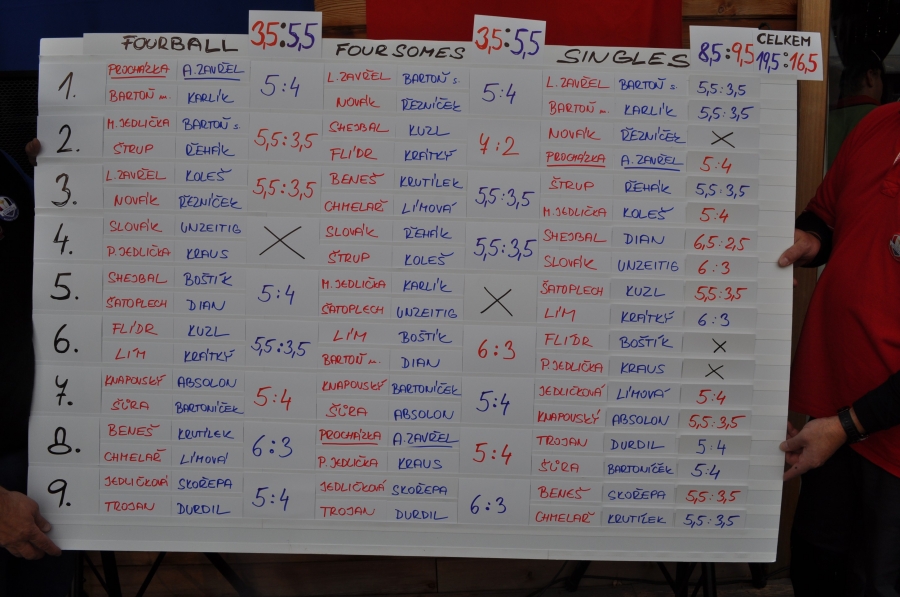 FOURBALL 3,5:5,5 FOURSOMES 3,5:5,5 SINGLES 8,5:9,5 CELKEM 19,5:16,5
1. PROCHÁZKA A.ZAVŘEL 5:4 L.ZAVŘEL BARTOŇ s. 5:4 L.ZAVŘEL BARTOŇ s. 5,5:3,5
BARTOŇ m. KARLÍK NOVÁK ŘEZNÍČEK BARTOŇ m. KARLÍK 5,5:3,5
2. M.JEDLIČKA BARTOŇ s. 5,5:3,5 SHEJBAL KUZL 7:2 NOVÁK ŘEZNÍČEK X
ŠTRUP ŘEHÁK FLÍDR KRÁTKÝ PROCHÁZKA A.ZAVŘEL 5:4
3. L.ZAVŘEL KOLEŠ 5,5:3,5 BENEŠ KRUTÍLEK 5,5:3,5 ŠTRUP ŘEHÁK 5,5:3,5
NOVÁK ŘEZNÍČEK CHMELAŘ LÍMOVÁ M.JEDLIČKA KOLEŠ 5:4
4. SLOVÁK UNZEITIG X SLOVÁK ŘEHÁK 5,5:3,5 SHEJBAL DIAN 6,5:2,5
P.JEDLIČKA KRAUS ŠTRUP KOLEŠ SLOVÁK UNZEITIG 6:3
5. SHEJBAL BOŠTÍK 5:4 M.JEDLIČKA KARLÍK X ŠATOPLECH KUZL 5,5:3,5
ŠATOPLECH DIAN ŠATOPLECH UNZEITIG LÍM KRÁTKÝ 6:3
6. FLÍDR KUZL 5,5:3,5 LÍM BOŠTÍK 6:3 FLÍDR BOŠTÍK X
LÍM KRÁTKÝ BARTOŇ m. DIAN P.JEDLIČKA KRAUS X
7. KNAPOVSKÝ ABSOLON 5:4 KNAPOVSKÝ BARTONÍČEK 5:4 JEDLIČKOVÁ LÍMOVÁ 5:4
ŠŮRA BARTONÍČEK ŠŮRA ABSOLON KNAPOVSKÝ ABSOLON 5,5:3,5
8. BENEŠ KRUTÍLEK 6:3 PROCHÁZKA A.ZAVŘEL 5:4 TROJAN DURDIL 5:4
CHMELAŘ LÍMOVÁ P.JEDLIČKA KRAUS ŠŮRA BARTONÍČEK 5:4
9. JEDLIČKOVÁ SKOŘEPA 5:4 JEDLIČKOVÁ SKOŘEPA 6:3 BENEŠ SKOŘEPA 5,5:3,5
TROJAN DURDIL TROJAN DURDIL CHMELAŘ KRUTÍLEK 5,5:3,5